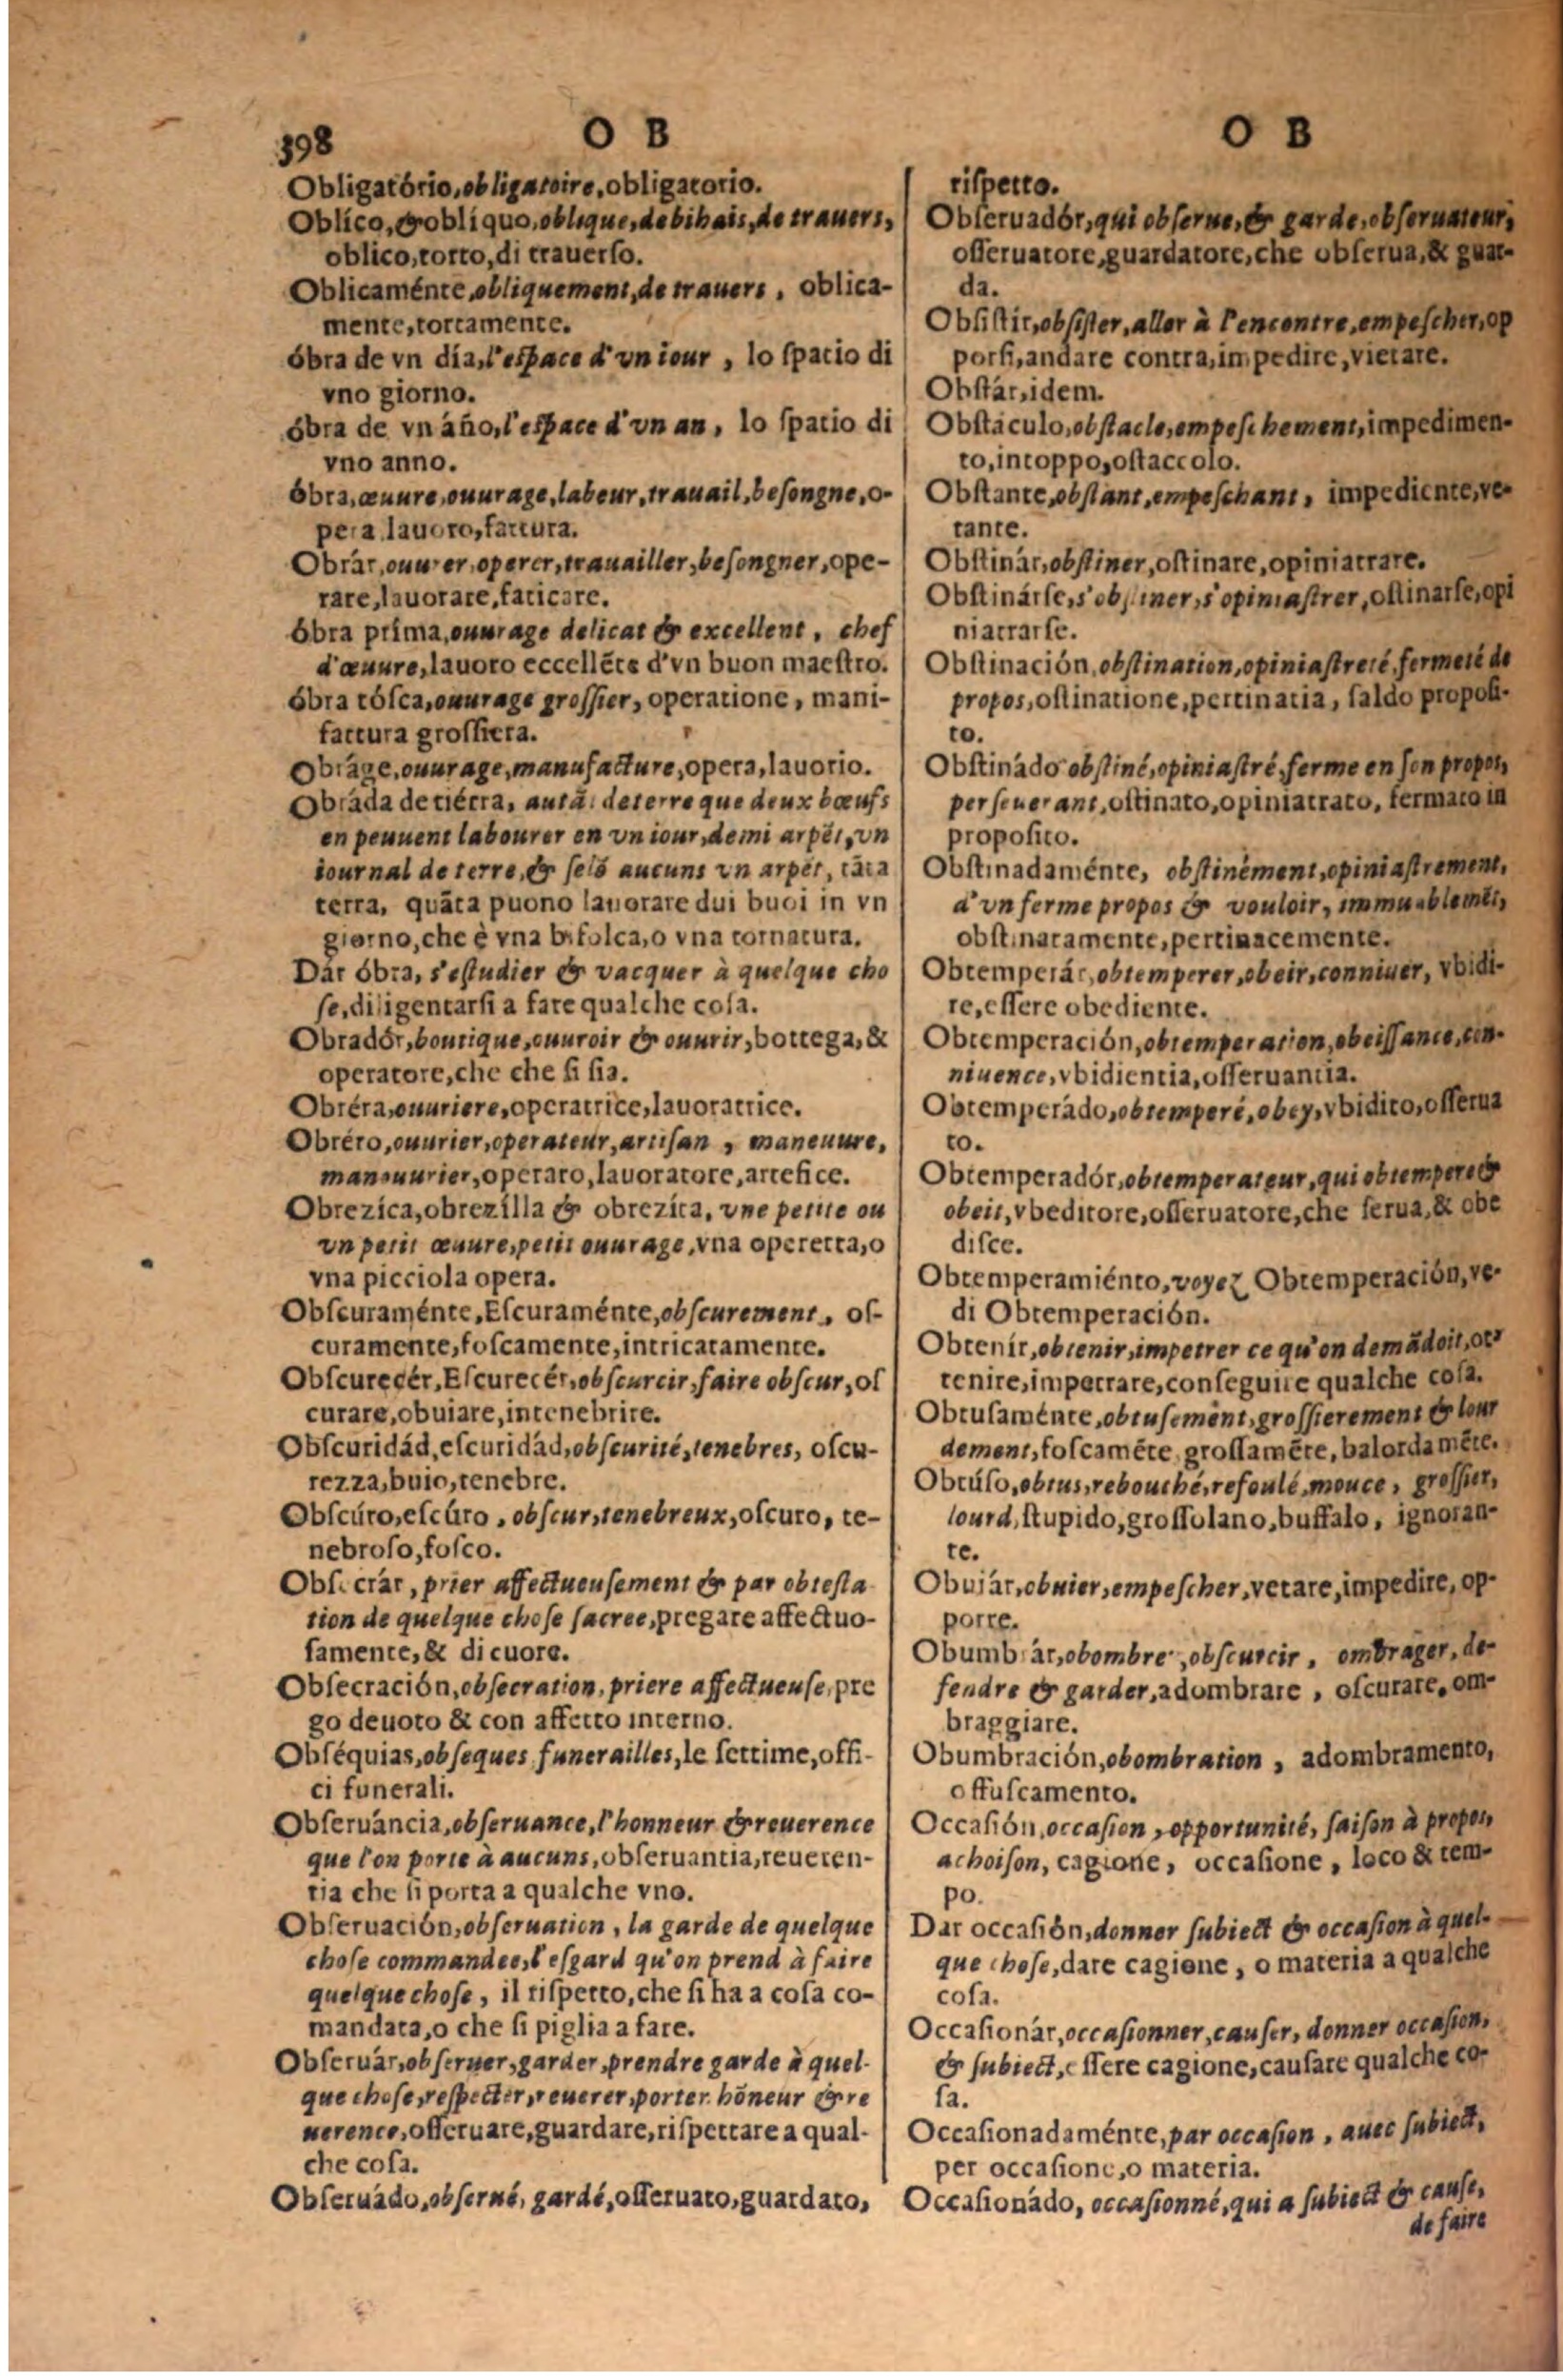 398
O B
Obligatório,obligatoire,obligatorio.
Oblíco,&oblíquo,oblique,debihais,de trauers,
oblico,torto,di trauerſo.
Oblicaménte,obliquement,de trauers, oblica-
mente,tortamente.
óbra de vn día,l'eſpace d'vn iour, lo ſpatio di
vno giorno.
óbra de vn áño,l'eſpace d'vn an, lo ſpatio di
vno anno.
óbra,œuure,ouurage,labeur,trauail,beſongne,o-
pera,lauoro,fattura.
Obrár,ouurer,operer,trauailler,beſongner,ope-
rare,lauorare,faticare.
óbra príma,ouurage delicat & excellent, chef
d'œuure,lauoro eccellẽte d'vn buon maeſtro.
óbra tóſca,ouurage groſſier, operatione, mani-
fattura groſſiera.
Obráge,ouurage,manufacture,opera,lauorio.
Obráda de tiérra, autã: de terre que deux bœufs
en peuuent labourer en vn iour,demi arpẽt,vn
iournal de terre,& ſelõ aucuns vn arpẽt, tãta
terra, quãta puono lauorare dui buoi in vn
giorno,che è vna bifolca,o vna tornatura.
Dár óbra, s'eſtudier & vacquer à quelque cho
ſe,diligentarſi a fare qualche coſa.
Obradór,boutique,ouuroir & ouurir,bottega,&
operatore,che che ſi ſia.
Obréra,ouuriere,operatrice,lauoratrice.
Obréro,ouurier,operateur,artiſan, maneuure,
manouurier,operaro,lauoratore,artefice.
Obrezíca,obrezílla & obrezíta, vne petite ou
vn petit œuure,petit ouurage,vna operetta,o
vna picciola opera.
Obſcuraménte,Eſcuraménte,obſcurement, oſ-
curamente,foſcamente,intricatamente.
Obſcurecér,Eſcurecér,obſcurcir,faire obſcur,oſ
curare,obuiare,intenebrire.
Obſcuridád,eſcuridád,obſcurité,tenebres, oſcu-
rezza,buio,tenebre.
Obſcúro,eſcúro, obſcur,tenebreux,oſcuro, te-
nebroſo,foſco.
Obſecrár, prier affectueuſement & par obteſta
tion de quelque choſe ſacree,pregare affectuo-
ſamente,& di cuore.
Obſecración,obſecration,priere affectueuſe,pre
go deuoto & con affetto interno.
Obſéquias,obſeques funerailles,le ſettime,offi-
ci funerali.
Obſeruáncia,obſeruance,l'honneur & reuerence
que l'on porte à aucuns,obſeruantia,reueren-
tia che ſi porta a qualche vno.
Obſeruación,obſeruation, la garde de quelque
choſe commandee,l'eſgard qu'on prend à faire
quelque choſe, il riſpetto,che ſi ha a coſa co-
mandata,o che ſi piglia a fare.
Obſeruár,obſeruer,garder,prendre garde à quel-
que choſe,reſpecter,reuerer,porter hõneur & re
uerence,oſſeruare,guardare,riſpettare a qual-
che coſa.
Obſeruádo,obſerué, gardé,oſſeruato,guardato,
O B
riſpetto.
Obſeruadór,qui obſerue,& garde,obſeruateur,
oſſeruatore,guardatore,che obſerua,& guar-
da.
Obſiſtir,obſiſter,aller à l'encontre,empeſcher,op
porſi,andare contra,impedire,vietare.
Obſtár,idem.
Obſtáculo,obſtacle,empeſchement,impedimen-
to,intoppo,oſtaccolo.
Obſtante,obſtant,empeſchant, impediente,ve-
tante.
Obſtinár,obſtiner,oſtinare,opiniatrare.
Obſtinárſe,s'obſtiner,s'opiniaſtrer,oſtinarſe,opi
niatrarſe.
Obſtinación,obſtination,opiniaſtreté,fermeté de
propos,oſtinatione,pertinatia, ſaldo propoſi-
to.
Obſtinádo obſtiné,opiniaſtré,ferme en ſon propos,
perſeuerant,oſtinato,opiniatrato, fermato in
propoſito.
Obſtinadaménte, obſtinément,opiniaſtrement,
d'vn ferme propos & vouloir, immuablemẽt,
obſtinatamente,pertinacemente.
Obtemperár,obtemperer,obeir,conniuer, vbidi-
re,eſſere obediente.
Obtemperación,obtemperation,obeiſſance,con-
niuence,vbidientia,oſſeruantia.
Obtemperádo,obtemperé,obey,vbidito,oſſerua
to.
Obtemperadór,obtemperateur,qui obtempere &
obeit,vbeditore,oſſeruatore,che ſerua,& obe
diſce.
Obtemperamiénto,voyez Obtemperación,ve-
di Obtemperación.
Obtenír,obtenir,impetrer ce qu'on demãdoit,ot-
tenire,impetrare,conſeguire qualche coſa.
Obtuſaménte,obtuſement,groſſierement & lour
dement,foſcamẽte,groſſamẽte,balordamẽte.
Obtúſo,obtus,rebouché,refoulé,mouce, groſſier,
lourd,ſtupido,groſſolano,buffalo, ignoran-
te.
Obuiár,obuier,empeſcher,vetare,impedire,op-
porre.
Obumbrár,obombrer,obſcurcir, ombrager,de-
fendre & garder,adombrare, oſcurare, om-
braggiare.
Obumbración,obombration, adombramento,
offuſcamento.
Occaſión,occaſion,opportunité, ſaiſon à propos,
achoiſon, cagione, occaſione, loco & tem-
po.
Dar occaſión,donner ſubiect & occaſion à quel-
que choſe,dare cagione, o materia a qualche
coſa.
Occaſionár,occaſionner,cauſer, donner occaſion,
& ſubiect,eſſere cagione,cauſare qualche co-
ſa.
Occaſionadaménte,par occaſion, auec ſubiect,
per occaſione,o materia.
Occaſionádo, occaſionné,qui a ſubiect & cauſe,
de faire